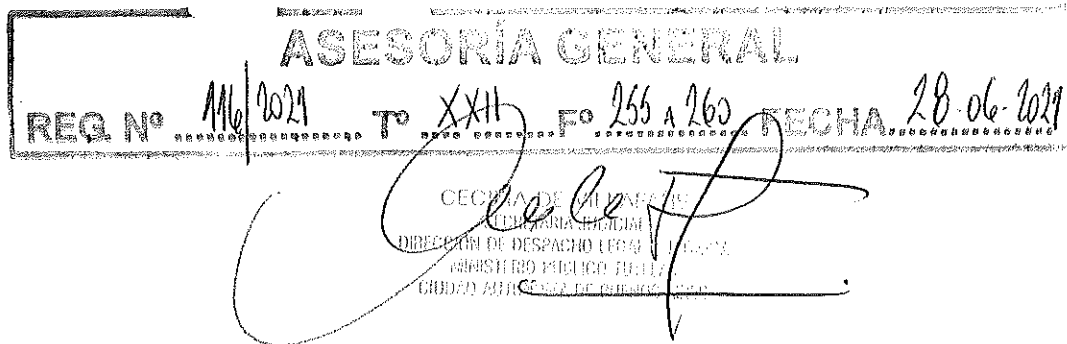 ASESORÍA GENERAL
REG. Nº 116/2021 Tº XXII Fº 255 A 260 FECHA 28-06-2021
CECILIA DE
SECRETARIA JUDICIAL
DIRECCIÓN DE DESPACHO LEGAL Y
MINISTERIO PÚBLICO TUTELAR
CIUDAD AUTÓNOMA DE BUENOS AIRES